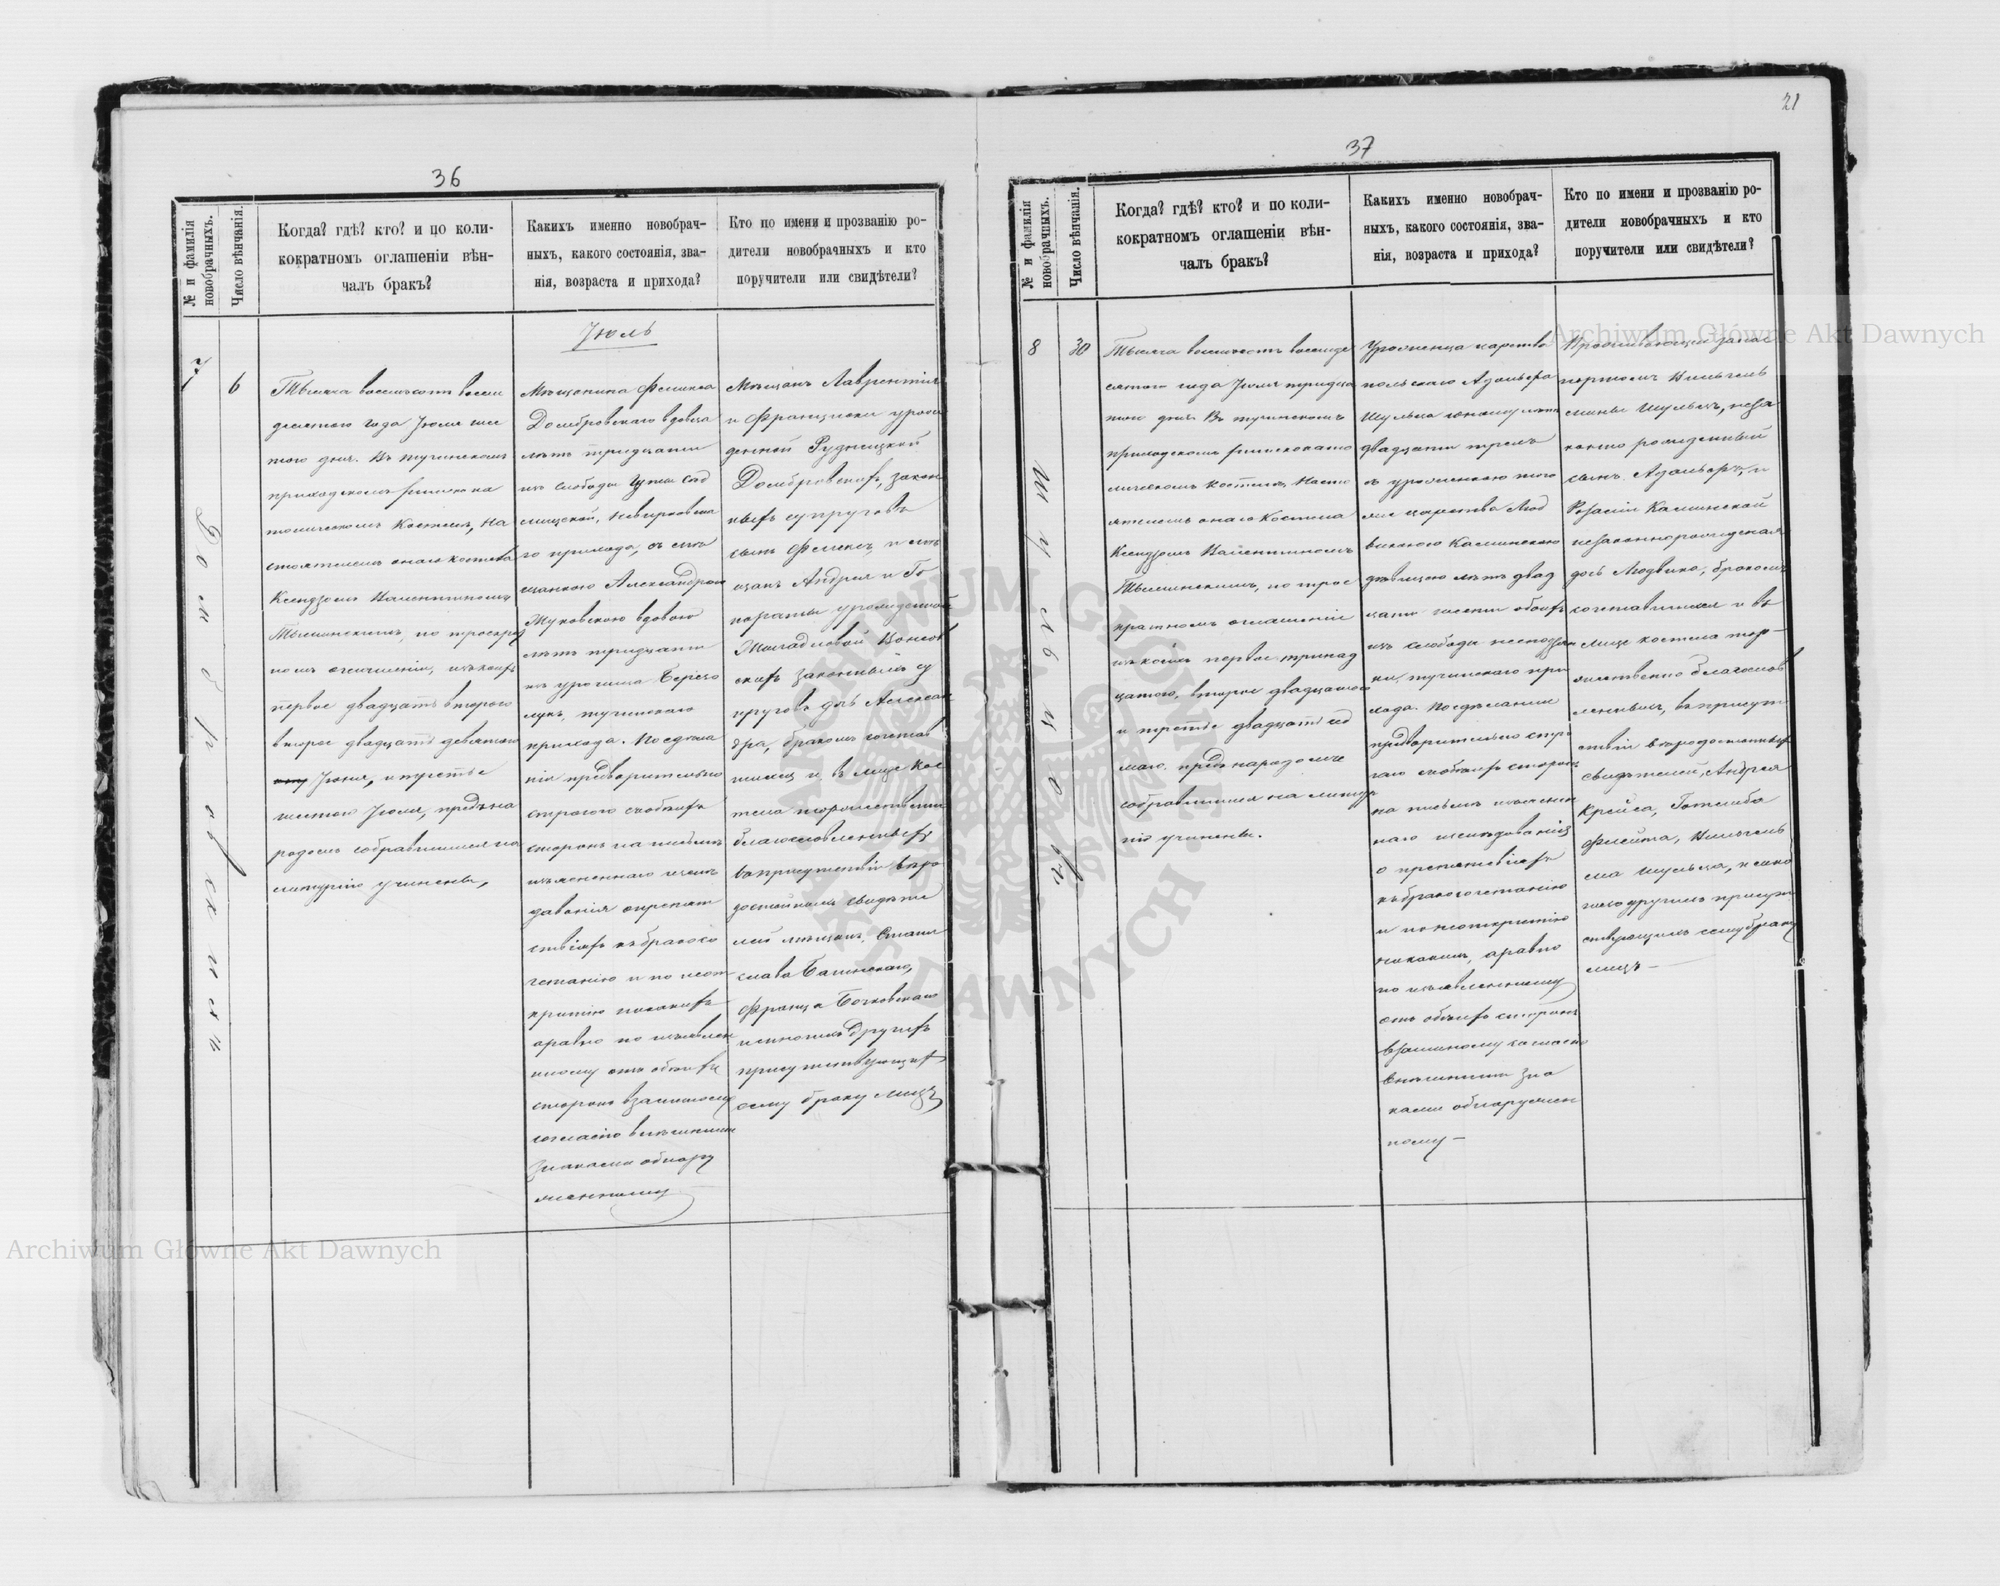 21
36
№ и фамилія новобрачныхъ.
Число вѣнчанія.
Когда? гдѣ? кто? и по коли-
кократномъ оглашеніи вѣн-
чалъ бракъ?
Какихъ именно новобрач-
ныхъ, какого состоянія, зва-
нія, возраста и прихода?
Кто по имени и прозванію ро-
дители новобрачныхъ и кто
поручители или свидѣтели?
Іюль
7
6
Домбровскихъ
Тысяча восемьсотъ восьми
десятого года Іюля шес
того дня. Въ тучинскомъ
приходскомъ римско ка
толическомъ Костелѣ, На
стоятелемъ онаго костела
Ксендзомъ Валентиномъ
по троекрат
номъ оглашеніи, изъ коихъ
первое двадцать второго
второе двадцать девятого
Іюня, и третье
шестого Іюля, предъ на
родомъ собравшимся на
литургію учинены,
Мѣщанина Феликса
Домбровскаго вдовца
лѣтъ тридцати
изъ слободы
го прихода, съ мѣ
щанкою Александрою
Жуковскою вдовою
лѣтъ тридцати
изъ урочища Берего
тучинскаго
прихода. По сдѣла
ніи предварительно
строгого с обоихъ
сторонъ на письмѣ
изъясненнаго изслѣ
дованія о препят
ствіяхъ къ бракосо
четанію и по неот
крытію никакихъ
а равно по изъявлен
ному отъ обоихъ
сторонъ взаимному
согласію внѣшними
знаками обнару
женному
Мѣщанъ Лаврентія
и Франциски урож
денной Рудницкой
Домбровскихъ, закон
ныхъ супруговъ
сынъ Феликсъ, и мѣ
щанъ Андрея и Го
нораты урожденной
скихъ законныхъ су
пруговъ дочь Алексан
дра, бракомъ сочетав
шихся и въ лице кос
тела торжественно
благословленныхъ
въ присутствіи вѣро
достойныхъ свидѣте
лей мѣщанъ, Стани
слава
Франца Бочковскаго
и многихъ другихъ
присутствующихъ
сему браку лицъ
37
№ и фамилія новобрачныхъ.
Число вѣнчанія.
Когда? гдѣ? кто? и по коли-
кократномъ оглашеніи вѣн-
чалъ бракъ?
Какихъ именно новобрач-
ныхъ, какого состоянія, зва-
нія, возраста и прихода?
Кто по имени и прозванію ро-
дители новобрачныхъ и кто
поручители или свидѣтели?
8
30
Шульцовъ
Тысяча восемьсотъ восьмиде
сятого года Іюля тридца
того дня. Въ тучинскомъ
приходскомъ римско като
лическомъ костелѣ, Насто
ятелемъ онаго Костела
Ксендзомъ Валентиномъ
по трое
кратномъ оглашеніи
изъ коихъ первое тринад
цатого, второе двадцатого
и третье двадцать седь
маго предъ народомъ
собравшимся на литур
гію учинены.
Уроженца царства
польскаго
Шульца юношу лѣтъ
двадцати трехъ
съ уроженкою того
же царства Люд
викою Каминскою
дѣвицею лѣтъ двад
цати шести обоихъ
изъ слободы
ки, тучинскаго при
хода. По сдѣланіи
предварительно стро
гаго с обоихъ сторонъ
на письмѣ изъяснен
наго изслѣдованія
о препятствіяхъ
къ бракосочетанію
и по неоткрытію
никакихъ, а равно
по изъявленному
отъ обоихъ сторонъ
взаимному согласію
внѣшними зна
ками обнаружен
ному —
Проживающей
Шульцъ, неза
конно рожденный
сынъ и
Розаліи Каминской
незаконнорожденная
дочь Людвика, бракомъ
сочетавшихся и въ
лице костела тор-
жественно благослов
ленныхъ, въ присут
ствіи вѣродостойныхъ
свидѣтелей, Андрея
Крейса, Готлиба
Вильгельма
Шульца, и мно
гихъ другихъ присут
ствующихъ сему браку
лицъ —
Archiwum Główne Akt Dawnych
Archiwum Główne Akt Dawnych
ARCHIWUM GŁÓWNE AKT DAWNYCH